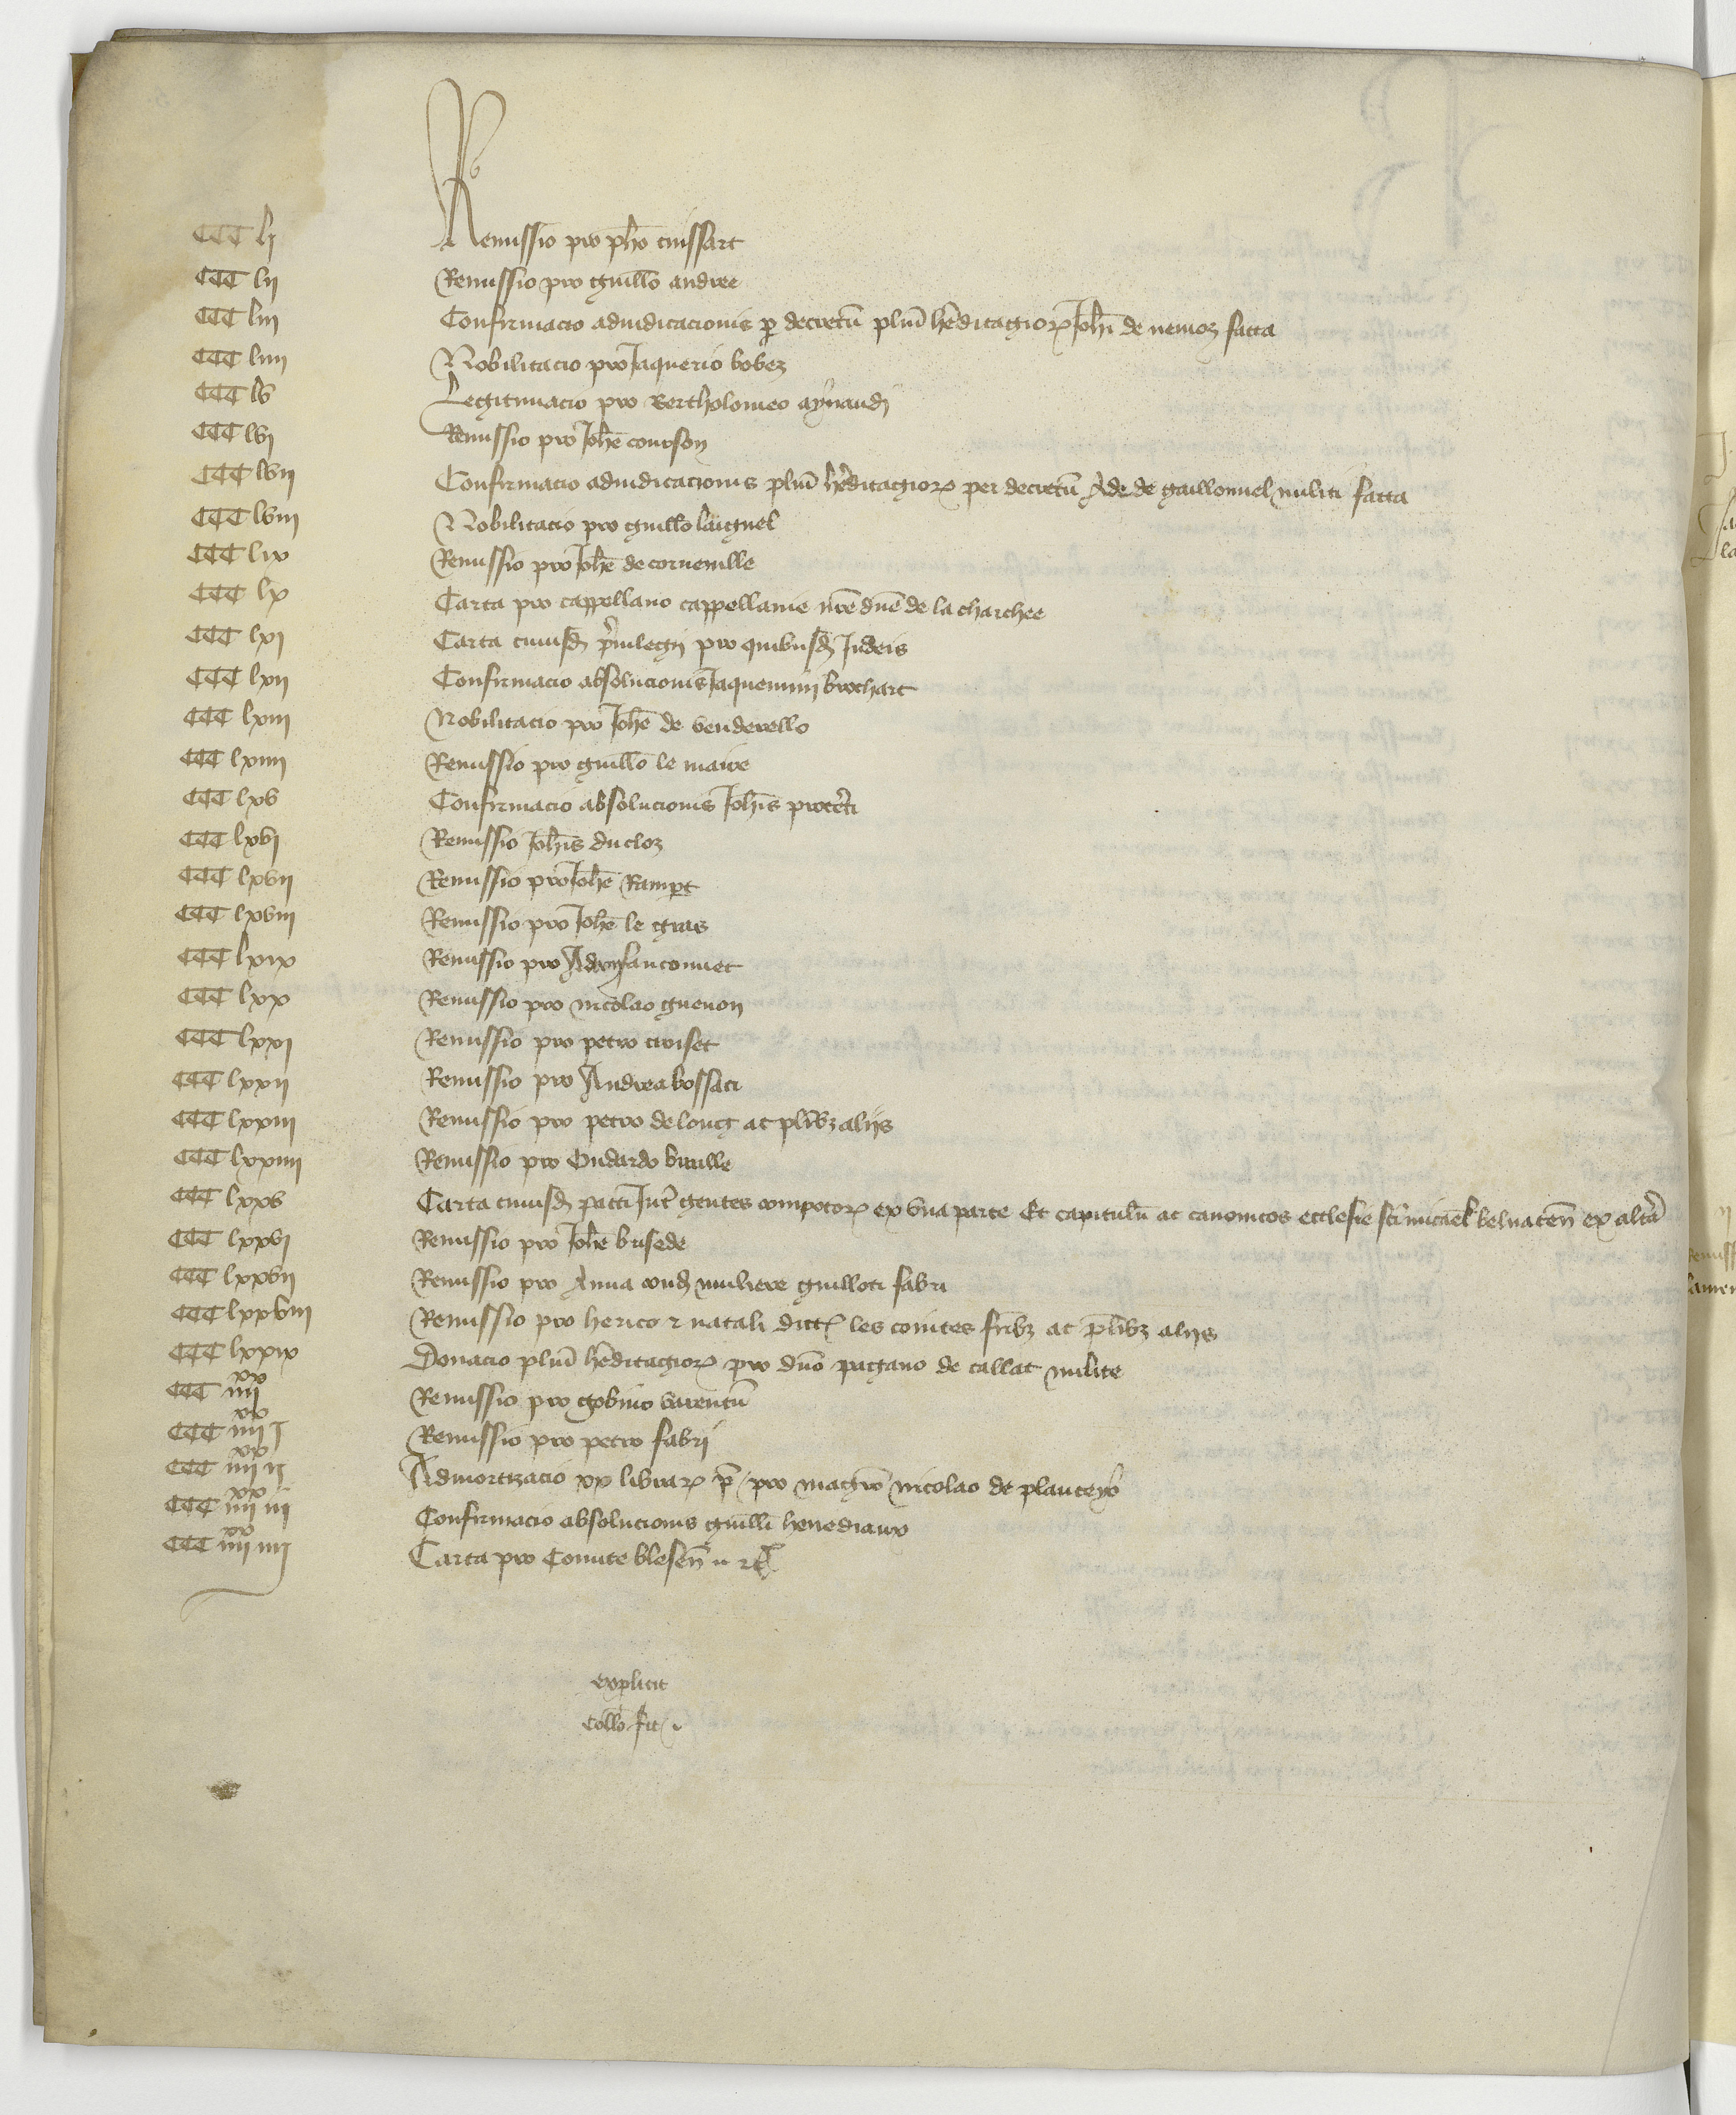 CCC lj Remissio pro pho cuissart
CCC lij Remissio pro guillo andree
CCC liij Confirmacio adiudicacionis p decretu pluiu heditagior Johi de nemoz facta
CCC liiij Nobilitacio pro Jaquerio bobez
CCC lv Legitimacio pro Bertholomeo aynaudi
CCC lvj Remissio pro Johe courson
CCC lvij Confirmacio adiudicacionis pluiu heditagior per decretu Ade de gaillonnel militi facta
CCC lviij Nobilitacio pro guillo laignel
CCC lix Remissio pro Johe de corneuille
CCC lx Carta pro cappellano cappellanie nre dne de la charchee
CCC lxj Carta cuiusd priuilegij pro quibusd Judeis
CCC lxij Confirmacio absolucionis Jaquemin brochart
CCC lxiij Nobilitacio pro Johe de venderello
CCC lxiiij Remissio pro guillo le maire
CCC lxv Confirmacio absolucionis Johis
CCC lxvj Remissio Johis du cloz
CCC lxvij Remissio pro Johe Rampt
CCC lxviij Remissio pro Johe le gras
CCC lxix Remissio pro fauconnet
CCC lxx Remissio pro nicolao guenon
CCC lxxj Remissio pro petro croiset
CCC lxxij Remissio pro Andrea bossaci
CCC lxxiij Remissio pro petro de long ac plibz alijs
CCC lxxiiij Remissio pro Oudardo
CCC lxxv Carta cuiusd pacti Int gentes compotor ex vna parte Et capitulu ac canonicos ecclesie sci micael beluaten ex alta
CCC lxxvj Remissio pro Johe brisede
CCC lxxvij Remissio pro Anna cond muliere guilloti fabri
CCC lxxviij Remissio pro herico z natali dict les contes fribz ac plibz alijs
CCC lxxix Donacio pluiu heditagior pro dno pagano de callat milite
CCC iiij xx Remissio pro gobino varentu
CCC iiij xx j Remissio pro petro fabri
CCC iiij xx ij Admortizacio xx librar p pro magro nicolao de planceyo
CCC iiij xx iij Confirmacio absolucionis guilli henediaux
CCC iiij xx iiij Carta pro Comite blesen
explicit
Collo fit